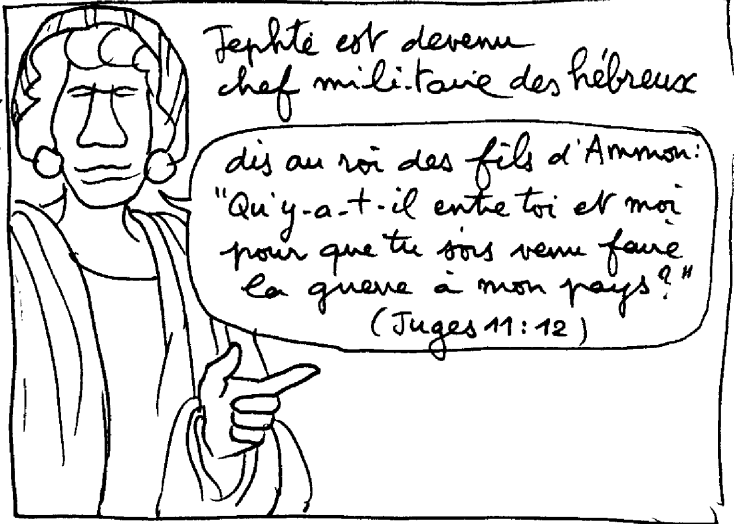 Jephté est devenu
chef militaire des hébreux
dis au roi des fils d'Ammon:
"Qu'y-a-t-il entre toi et moi
pour que tu sois venu faire
la guerre à mon pays?"
(Juges 11:12)